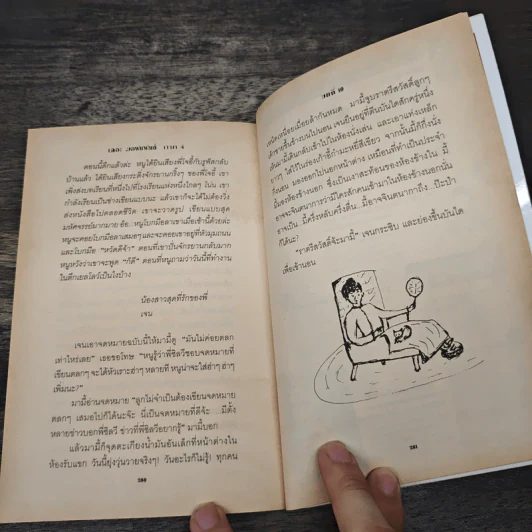 ตอนนี้ดึกแล้วค่ะ หนูได้ยินเสียงพี่โจอี้กับรูพัสกลับ
บ้านแล้ว ได้ยินเสียงกระดิ่งจักรยานกริ๊งๆ ของพี่โจอี้ เขา
เพิ่งส่งบทเรียนที่หนึ่งไปที่โรงเรียนแห่งหนึ่งไกลๆ โน่น เขา
กำลังเรียนเป็นช่างเขียนแบบนะ แล้วเขาก็จะได้ไม่ต้องวิ่ง
ส่งหนังสือไปตลอดชีวิต เขาจะวาดรูป เขียนแบบสุด
มหัศจรรย์มากมาย
หนูจะคอยโบกมือลาเสมอๆ และจะคอยเขาอยู่ที่หัวมุมถนน
และโบกมือ "หวัดดีจ้า" ตอนที่เขาปั่นจักรยานกลับมาก
หนูหวังว่าเขาจะพูด "ก็ดี" ตอนที่หนูถามว่าวันนี้ที่ทำงาน
ในตึกเยลโลว์เป็นไงบ้าง
น้องสาวสุดที่รักของพี่
เจน
เจนเอาจดหมายฉบับนี้ให้มามี้ดู "มันไม่ค่อยตลก
เท่าไหร่เลย" เธอขอโทษ "หนูรู้ว่าพี่ซิลวีชอบจดหมายที่
เขียนตลกๆ จะได้หัวเราะฮ่าๆ หลายที หนูน่าจะใส่ฮ่าๆ ฮ่าๆ
เพิ่มนะ?"
มามี้อ่านจดหมาย "ลูกไม่จำเป็นต้องเขียนจดหมาย
ตลกๆ เสมอไปก็ได้นะจ๊ะ นี่เป็นจดหมายที่ดีจ้ะ ...มีตั้ง
หลายข่าวบอกพี่ซิลวี ข่าวที่พี่ซิลวีอยากรู้" มามี้บอก
แล้วมามี้ก็จุดตะเกียงน้ำมันอันเล็กที่หน้าต่างใน
ห้องรับแขก วันนี้ยุ่งวุ่นวายจริงๆ! วันอะไรก็ไม่รู้! ทุกคน
280
บทที่ 10
เหน็ดเหนื่อยเมื่อยล้ากันหมด มามี้จูบราตรีสวัสดิ์ลูกๆ
เด็กชายขึ้นข้างบนไปนอน เจนยืนอยู่ที่ตีนบันไดสักครู่หนึ่ง
เห็นมามี้เดินกลับเข้าไปในห้องนั่งเล่น และเอาแท่งเหล็ก
ยาวๆ
นั่งนอน มองออกไปนอกหน้าต่าง เหมือนที่ทำเป็นประจำ
อาจจะจินตนาการว่ามีใครสักคนเข้ามาในห้องข้างนอกนั่น
ก็ได้นะ?
"ราตรีสวัสดิ์จ้ะมามี้" เจนกระซิบ และย่องขึ้นบันได
เพื่อเข้านอน
281